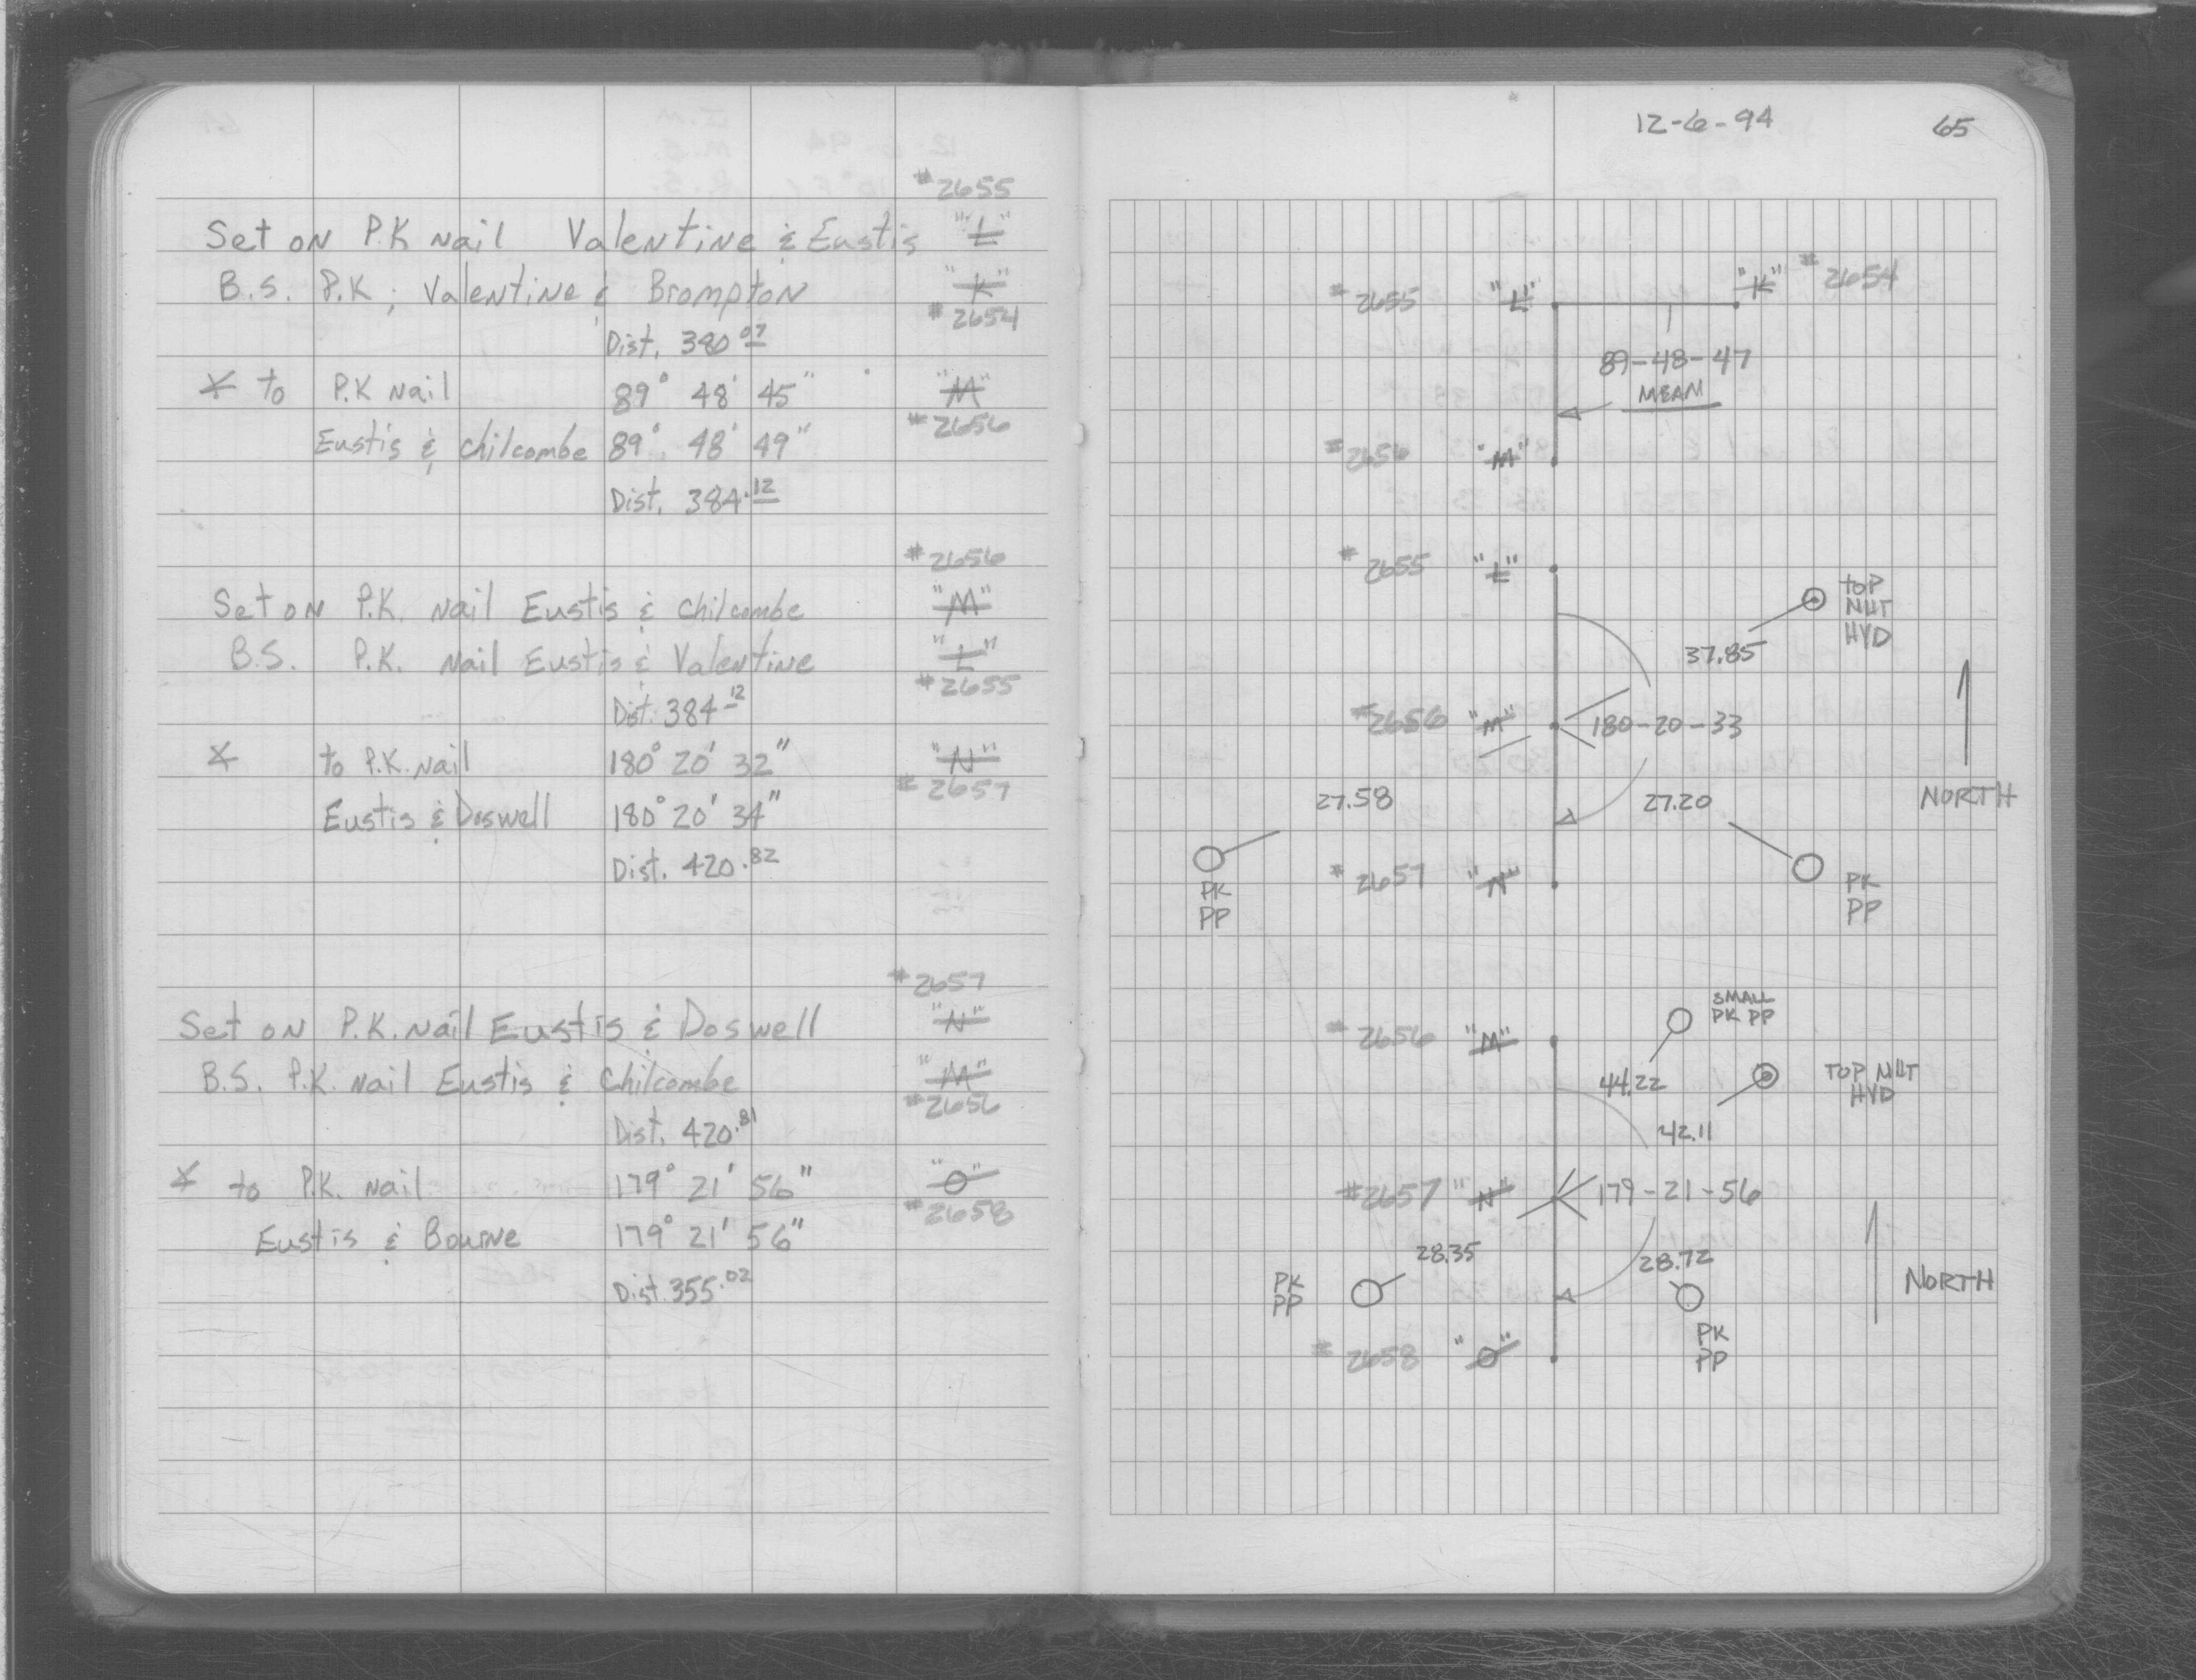 #2655
Set on P.K Nail Valentine & Eustis "L"
B.S. P.K; Valentine & Brompton "K"
#2654
Dist. 380.07
∠ to P.K Nail 89° 48' 45" "M"
#2656
Eustis & Chilcombe 89° 48' 49"
Dist. 384.12
#2656
Set on P.K. Nail Eustis & Chilcombe "M"
B.S. P.K. Nail Eustis & Valentine "L"
#2655
Dist. 384.12
∠ to P.K. Nail 180° 20' 32" "N"
#2657
Eustis & Doswell 180° 20' 34"
Dist. 420.82
#2657
Set on P.K. Nail Eustis & Doswell "N"
B.S. P.K. Nail Eustis & Chilcombe "M"
#2656
Dist. 420.81
∠ to P.K. Nail 179° 21' 56" "O"
#2658
Eustis & Bourne 179° 21' 56"
Dist. 355.02
12-6-94 65
#2655 "L" "K" #2654
89-48-47
MEAN
#2656 "M"
#2655 "L"
TOP
NUT
HYD
37.85
#2656 "M" 180-20-33
27.58 27.20
NORTH
#2657 "N"
PK
PP
PK
PP
SMALL
PK PP
#2656 "M"
44.22
TOP NUT
HYD
42.11
#2657 "N" 179-21-56
28.35 28.72
PK
PP
NORTH
PK
PP
#2658 "O"